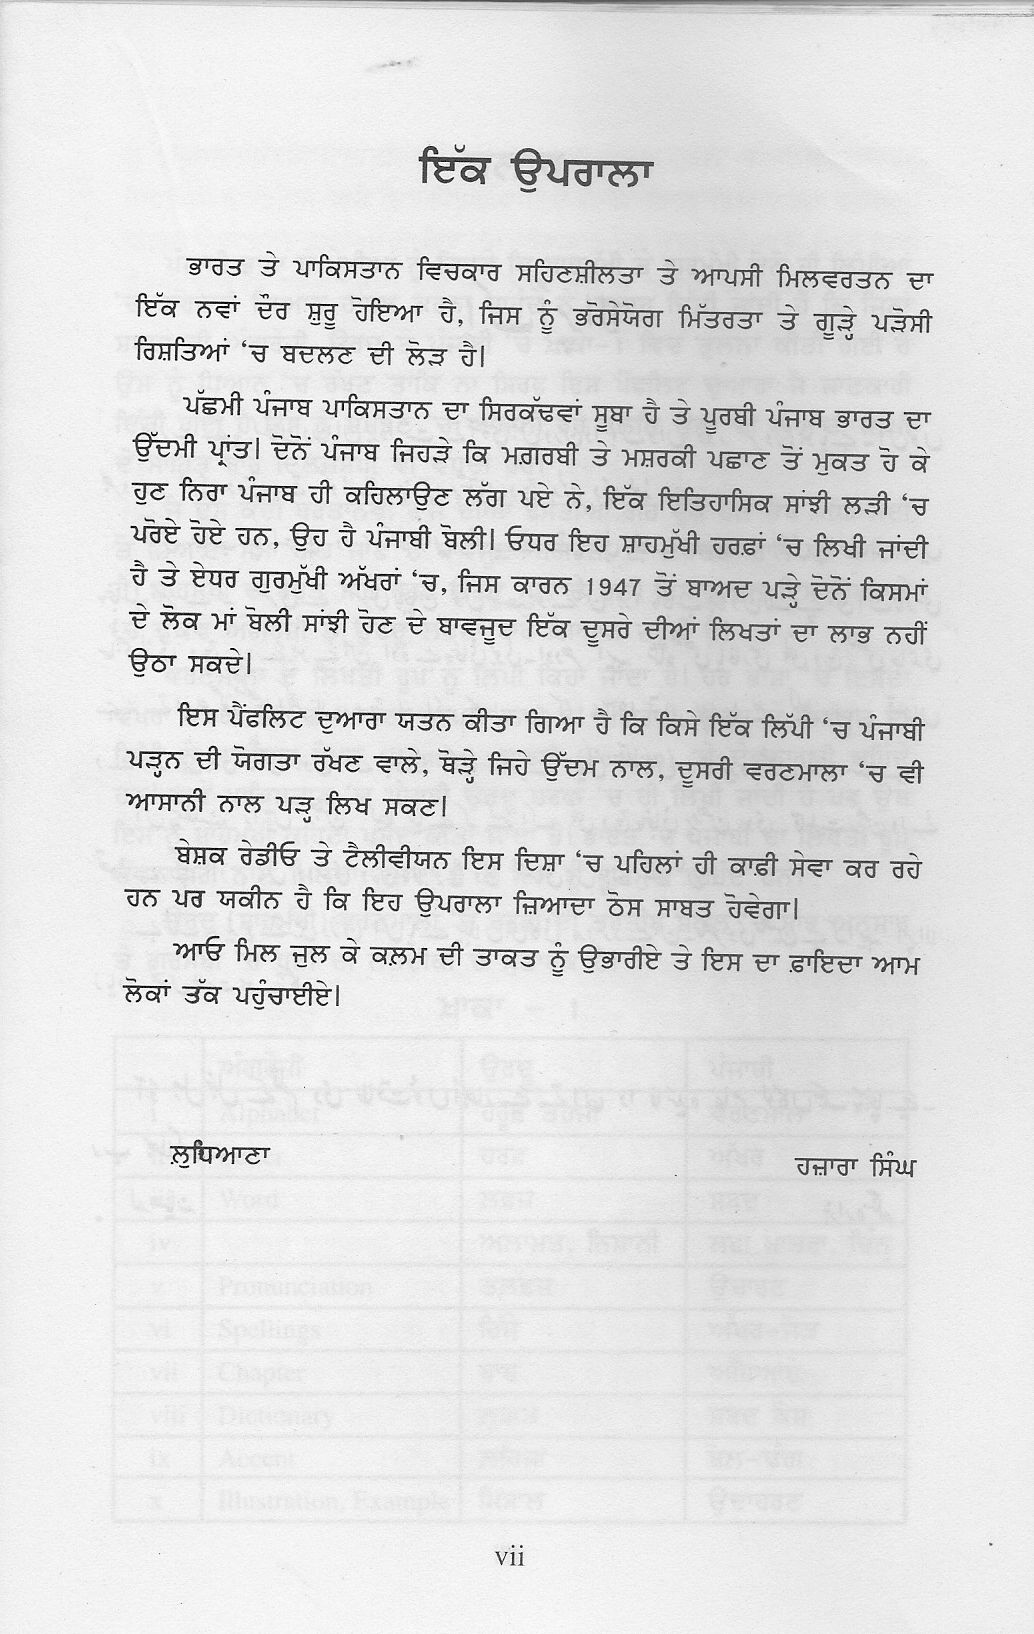 ਇੱਕ ਉਪਰਾਲਾ
ਭਾਰਤ ਤੇ ਪਾਕਿਸਤਾਨ ਵਿਚਕਾਰ ਸਹਿਣਸ਼ੀਲਤਾ ਤੇ ਆਪਸੀ ਮਿਲਵਰਤਨ ਦਾ
ਇੱਕ ਨਵਾਂ ਦੌਰ ਸ਼ੁਰੂ ਹੋਇਆ ਹੈ, ਜਿਸ ਨੂੰ ਭਰੋਸੇਯੋਗ ਮਿੱਤਰਤਾ ਤੇ ਗੂੜ੍ਹੇ ਪੜੋਸੀ
ਰਿਸ਼ਤਿਆਂ ‘ਚ ਬਦਲਣ ਦੀ ਲੋੜ ਹੈ।
ਪੱਛਮੀ ਪੰਜਾਬ ਪਾਕਿਸਤਾਨ ਦਾ ਸਿਰਕੱਢਵਾਂ ਸੂਬਾ ਹੈ ਤੇ ਪੂਰਬੀ ਪੰਜਾਬ ਭਾਰਤ ਦਾ
ਉੱਦਮੀ ਪ੍ਰਾਂਤ। ਦੋਨੋਂ ਪੰਜਾਬ ਜਿਹੜੇ ਕਿ ਮਗ਼ਰਬੀ ਤੇ ਮਸ਼ਰਕੀ ਪਛਾਣ ਤੋਂ ਮੁਕਤ ਹੋ ਕੇ
ਹੁਣ ਨਿਰਾ ਪੰਜਾਬ ਹੀ ਕਹਿਲਾਉਣ ਲੱਗ ਪਏ ਨੇ, ਇੱਕ ਇਤਿਹਾਸਿਕ ਸਾਂਝੀ ਲੜੀ ‘ਚ
ਪਰੋਏ ਹੋਏ ਹਨ, ਉਹ ਹੈ ਪੰਜਾਬੀ ਬੋਲੀ। ਓਧਰ ਇਹ ਸ਼ਾਹਮੁੱਖੀ ਹਰਫ਼ਾਂ ‘ਚ ਲਿਖੀ ਜਾਂਦੀ
ਹੈ ਤੇ ਏਧਰ ਗੁਰਮੁੱਖੀ ਅੱਖਰਾਂ ‘ਚ, ਜਿਸ ਕਾਰਨ 1947 ਤੋਂ ਬਾਅਦ ਪੜ੍ਹੇ ਦੋਨੋਂ ਕਿਸਮਾਂ
ਦੇ ਲੋਕ ਮਾਂ ਬੋਲੀ ਸਾਂਝੀ ਹੋਣ ਦੇ ਬਾਵਜੂਦ ਇੱਕ ਦੂਸਰੇ ਦੀਆਂ ਲਿਖਤਾਂ ਦਾ ਲਾਭ ਨਹੀਂ
ਉਠਾ ਸਕਦੇ।
ਇਸ ਪੈਂਫਲਿਟ ਦੁਆਰਾ ਯਤਨ ਕੀਤਾ ਗਿਆ ਹੈ ਕਿ ਕਿਸੇ ਇੱਕ ਲਿੱਪੀ ‘ਚ ਪੰਜਾਬੀ
ਪੜ੍ਹਨ ਦੀ ਯੋਗਤਾ ਰੱਖਣ ਵਾਲੇ, ਥੋੜ੍ਹੇ ਜਿਹੇ ਉੱਦਮ ਨਾਲ, ਦੂਸਰੀ ਵਰਣਮਾਲਾ ‘ਚ ਵੀ
ਆਸਾਨੀ ਨਾਲ ਪੜ੍ਹ ਲਿਖ ਸਕਣ।
ਬੇਸ਼ਕ ਰੇਡੀਓ ਤੇ ਟੈਲੀਵੀਯਨ ਇਸ ਦਿਸ਼ਾ ‘ਚ ਪਹਿਲਾਂ ਹੀ ਕਾਫ਼ੀ ਸੇਵਾ ਕਰ ਰਹੇ
ਹਨ ਪਰ ਯਕੀਨ ਹੈ ਕਿ ਇਹ ਉਪਰਾਲਾ ਜ਼ਿਆਦਾ ਠੋਸ ਸਾਬਤ ਹੋਵੇਗਾ।
ਆਓ ਮਿਲ ਜੁਲ ਕੇ ਕਲਮ ਦੀ ਤਾਕਤ ਨੂੰ ਉਭਾਰੀਏ ਤੇ ਇਸ ਦਾ ਫ਼ਾਇਦਾ ਆਮ
ਲੋਕਾਂ ਤੱਕ ਪਹੁੰਚਾਈਏ।
ਲੁਧਿਆਣਾ
ਹਜ਼ਾਰਾ ਸਿੰਘ
vii